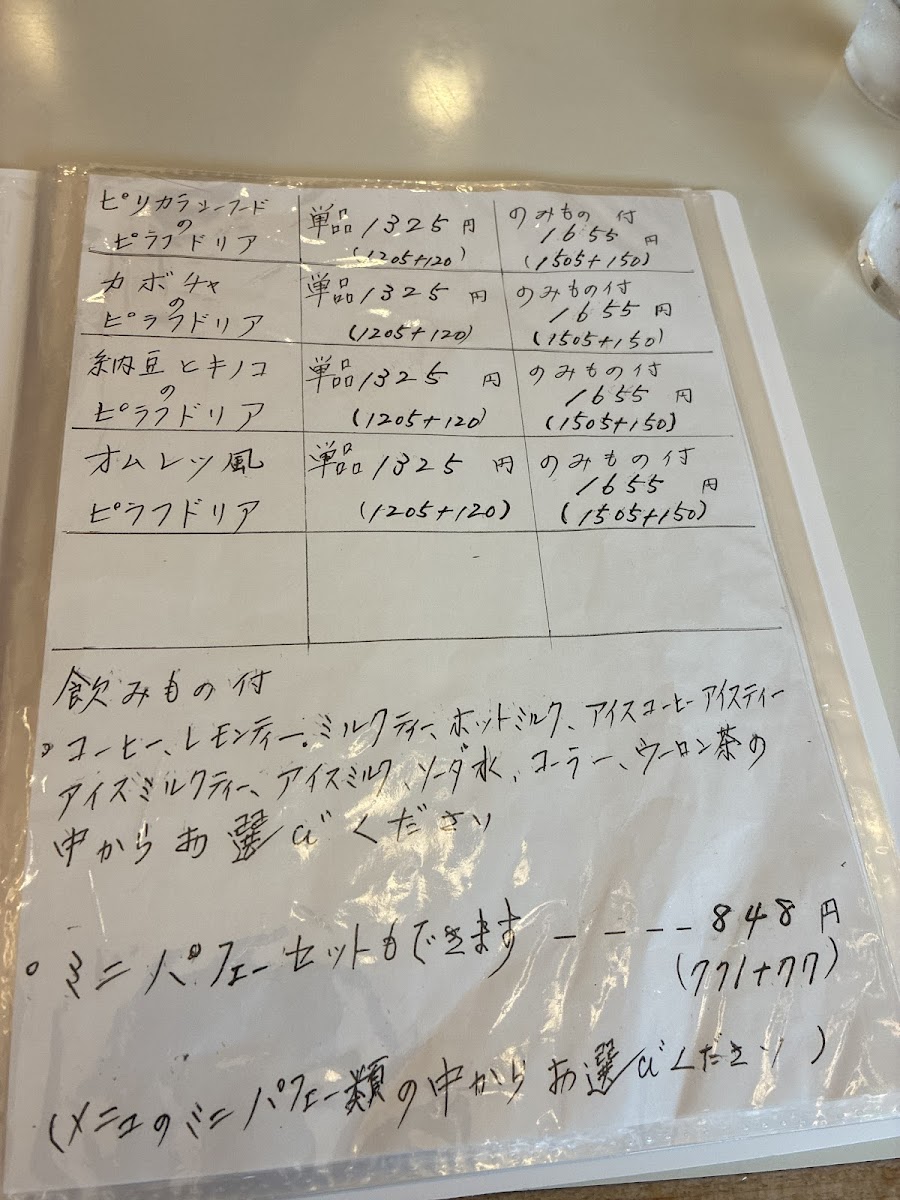 ピリカラシーフード
の
ピラフドリア
単品1325円
(1205+120)
のみもの 付
1655円
(1505+150)
カボチャ
の
ピラフドリア
単品1325円
(1205+120)
のみもの付
1655円
(1505+150)
納豆とキノコ
の
ピラフドリア
単品1325円
(1205+120)
のみもの付
1655円
(1505+150)
オムレツ風
ピラフドリア
単品1325円
(1205+120)
のみもの付
1655円
(1505+150)
飲みもの付
○ コーヒー、レモンティー、ミルクティー、ホットミルク、アイスコーヒー アイスティー
アイスミルクティー、アイスミルク、ソーダ水、コーラー、ウーロン茶の
中からお選びください
○ ミニパフェーセットもできます ---- 848円
(771+77)
(メニュのミニパフェー類の中からお選びください)